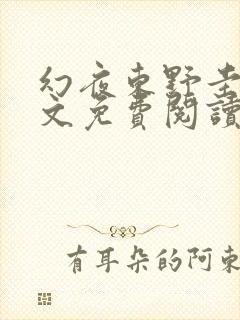 幻夜東野圭
文免費閱讀
有耳朵的阿東